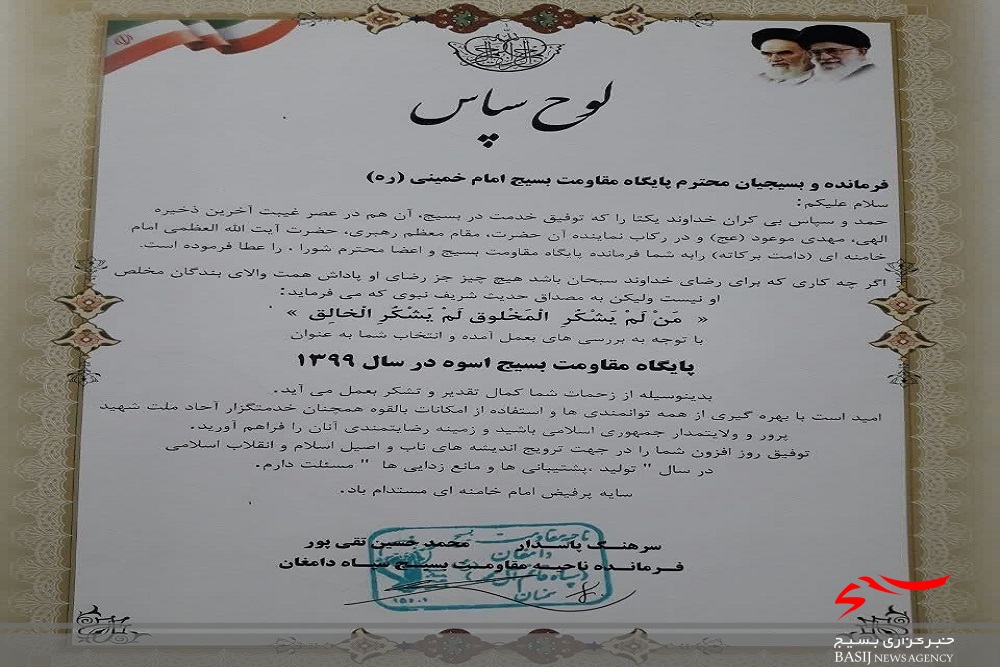 لوح سپاس
فرمانده و بسیجیان محترم پایگاه مقاومت بسیج امام خمینی (ره)
سلام علیکم:
حمد و سپاس بی کران خداوند یکتا را که توفیق خدمت در بسیج، آن هم در عصر غیبت آخرین ذخیره
الهی، مهدی موعود (عج) و در رکاب نماینده آن حضرت، مقام معظم رهبری، حضرت آیت الله العظمی امام
خامنه ای (دامت برکاته) رابه شما فرمانده پایگاه مقاومت بسیج و اعضا محترم شورا ، را عطا فرموده است.
اگر چه کاری که برای رضای خداوند سبحان باشد هیچ چیز جز رضای او پاداش همت والای بندگان مخلص
او نیست ولیکن به مصداق حدیث شریف نبوی که می فرماید:
« مَنْ لَمْ یَشْکُرِ الْمَخْلوق لَمْ یَشْکُرِ الْخالِق »
با توجه به بررسی های بعمل آمده و انتخاب شما به عنوان
پایگاه مقاومت بسیج اسوه در سال ۱۳۹۹
بدینوسیله از زحمات شما کمال تقدیر و تشکر بعمل می آید.
امید است با بهره گیری از همه توانمندی ها و استفاده از امکانات بالقوه همچنان خدمتگزار آحاد ملت شهید
پرور و ولایتمدار جمهوری اسلامی باشید و زمینه رضایتمندی آنان را فراهم آورید.
توفیق روز افزون شما را در جهت ترویج اندیشه های ناب و اصیل اسلام و انقلاب اسلامی
در سال " تولید ،پشتیبانی ها و مانع زدایی ها " مسئلت دارم.
سایه پرفیض امام خامنه ای مستدام باد.
سرهنگ پاسدار محمد حسین تقی پور
فرمانده ناحیه مقاومت بسیج سپاه دامغان
ناحیه مقاومت بسیج
دامغان
خبرگزاری بسیج
BASIJ NEWS AGENCY